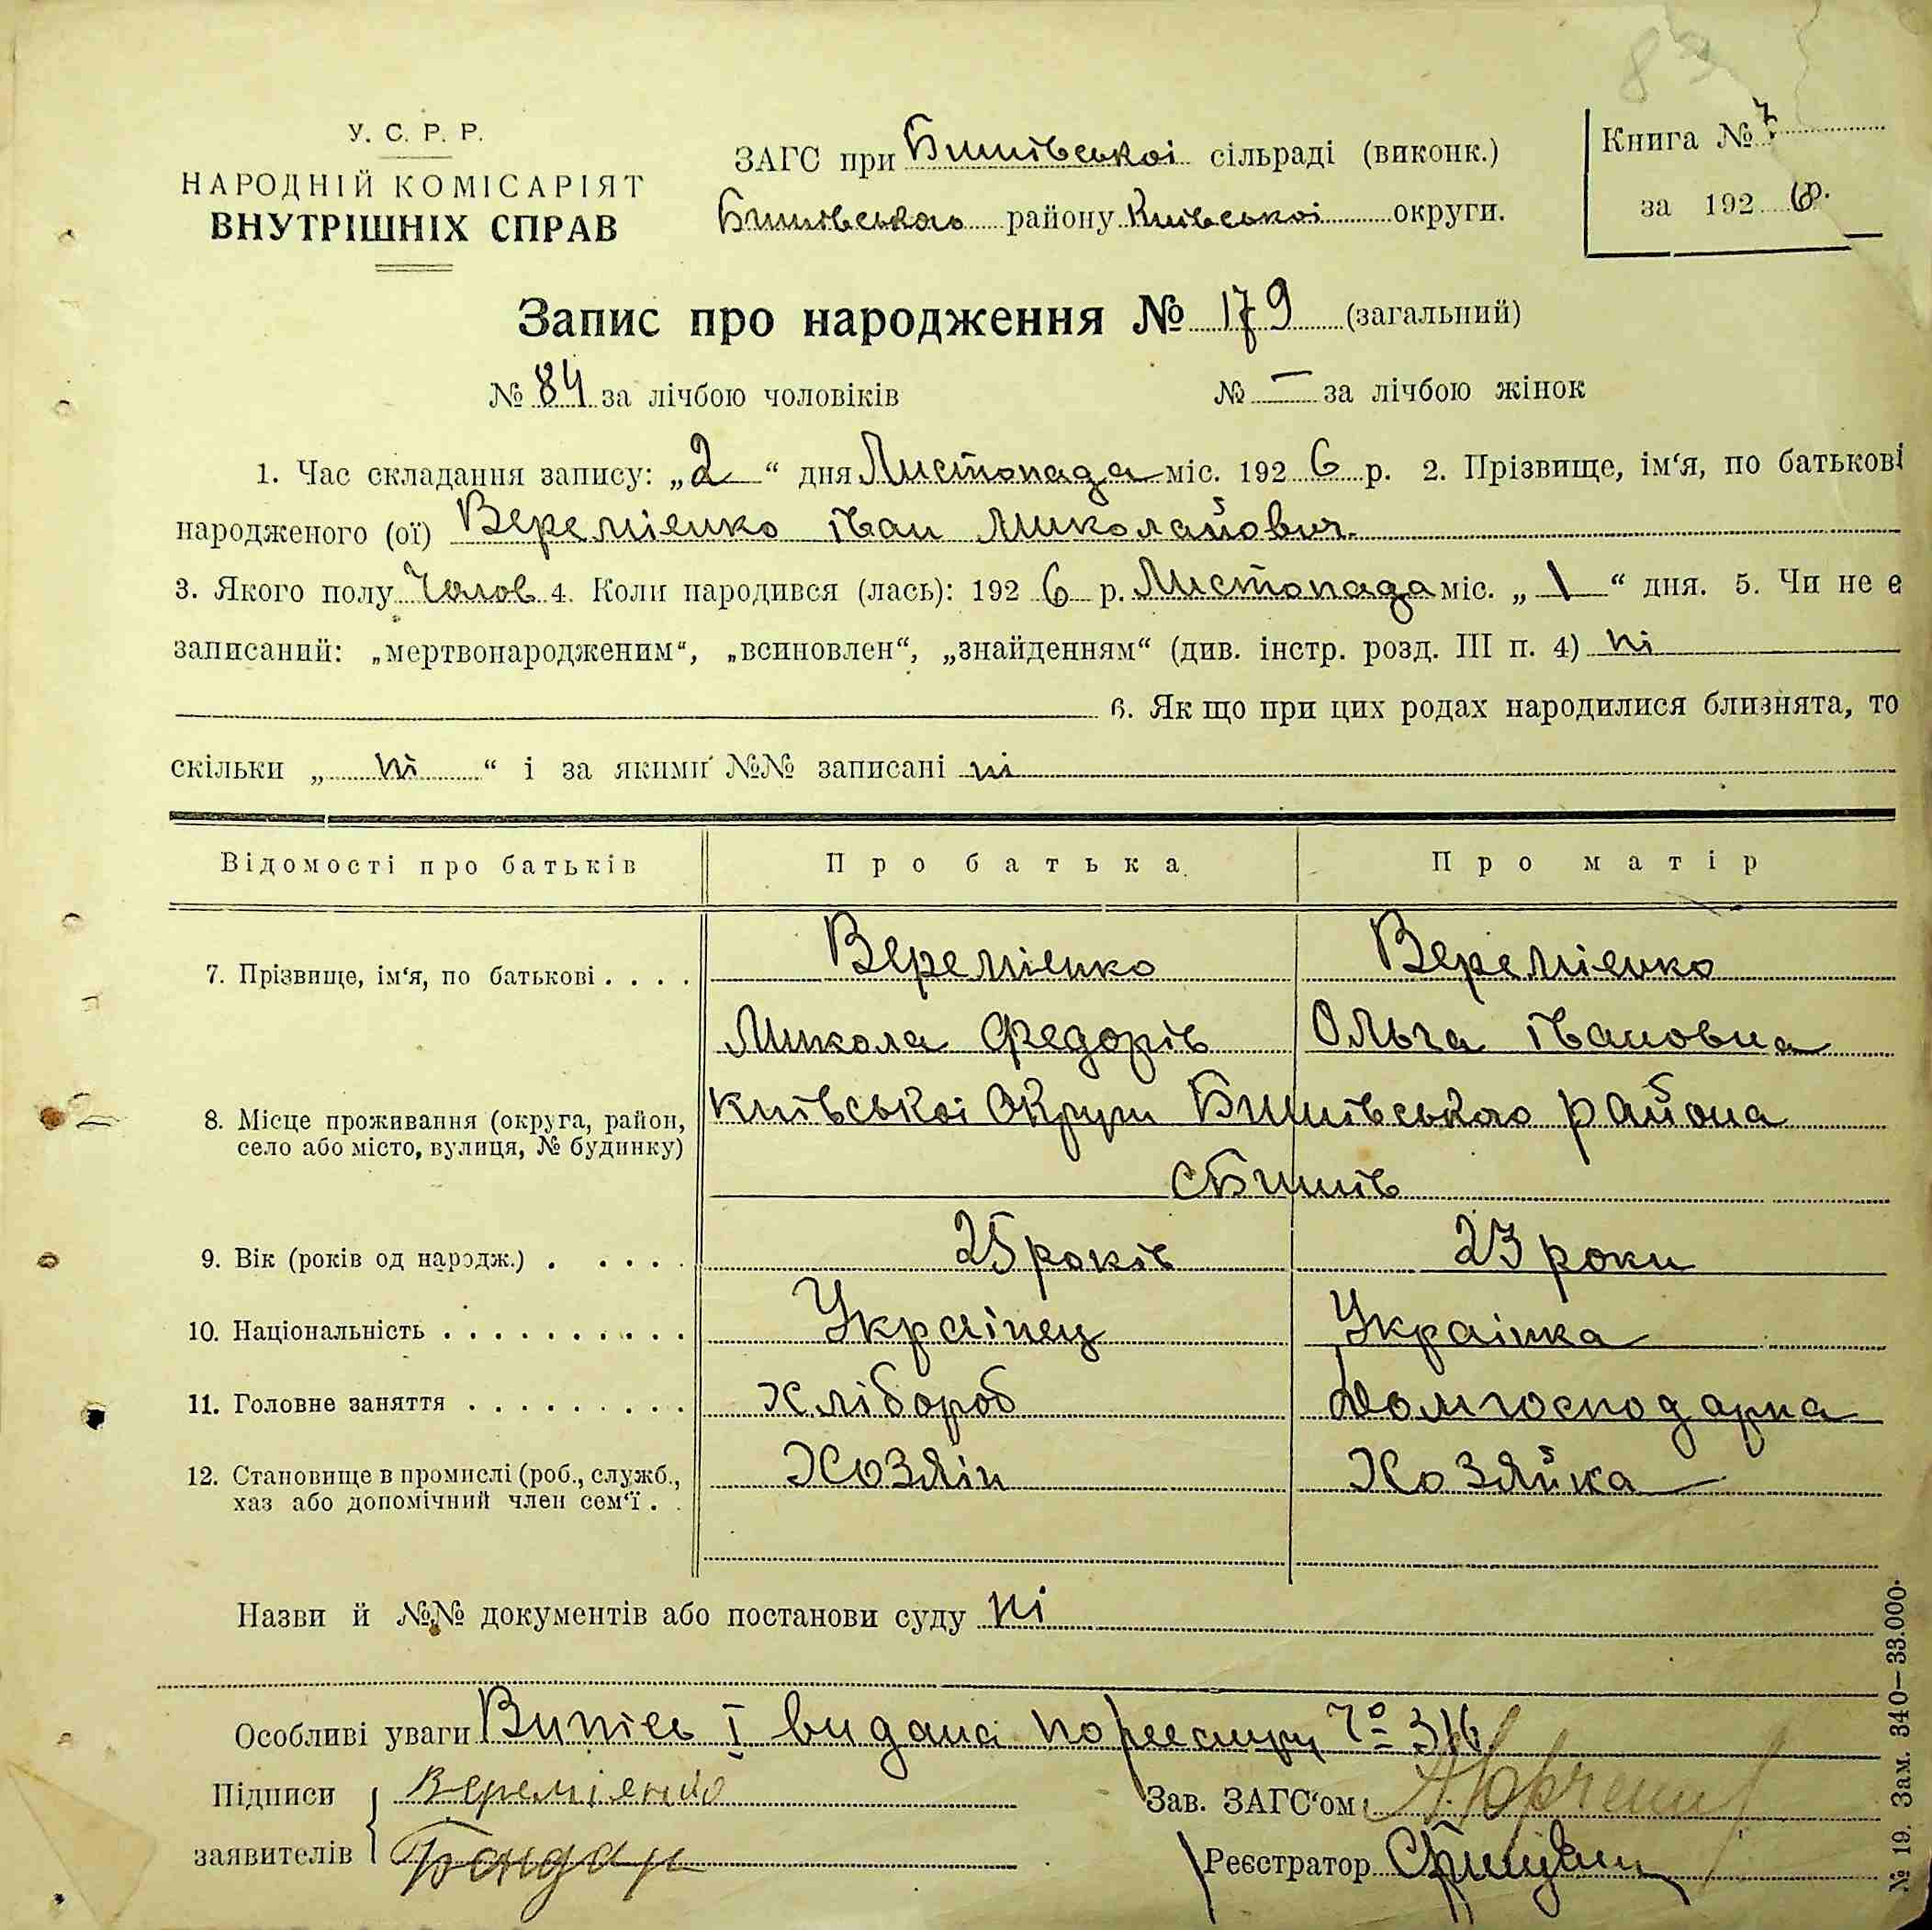 83
У. С. Р. Р.
НАРОДНІЙ КОМІСАРІЯТ
ВНУТРІШНІХ СПРАВ
ЗАГС при Бишівської сільраді (виконк.)
Бишівського району Київської округи.
Книга № 7
за 192 6 р.
Запис про народження № 179 (загальний)
№ 84 за лічбою чоловіків № — за лічбою жінок
1. Час складання запису: „2“ дня Листопада міс. 192 6 р. 2. Прізвище, ім‘я, по батькові
народженого (ої) Веремієнко Іван Миколайович.
3. Якого полу Чолов 4. Коли народився (лась): 192 6 р. Листопада міс. „1“ дня. 5. Чи не є
записаний: „мертвонародженим“, „всиновлен“, „знайденням“ (див. інстр. розд. III п. 4) ні
6. Як що при цих родах народилися близнята, то
скільки „ ні “ і за якими №№ записані ні
Відомості про батьків Про батька Про матір
7. Прізвище, ім‘я, по батькові . . . . Веремієнко Веремієнко
Микола Федорів Ольга Івановна
8. Місце проживання (округа, район, село або місто, вулиця, № будинку) Київської Округи Бишівського района
с Бишів
9. Вік (років од народж.) . . . . . 25 років 23 роки
10. Національність . . . . . . . . . . Українец Українка
11. Головне заняття . . . . . . . . . Хлібороб Домгосподарка
12. Становище в промислі (роб., служб., хаз або допомічний член сем‘ї . . Хозяін Хозяйка
Назви й №№ документів або постанови суду ні
Особливі уваги Випісь I видана по реестру № 316
Підписи заявителів Веремієнко
Бондар
Зав. ЗАГС‘ом
Реєстратор
№ 19. Зам. 340—33.000.